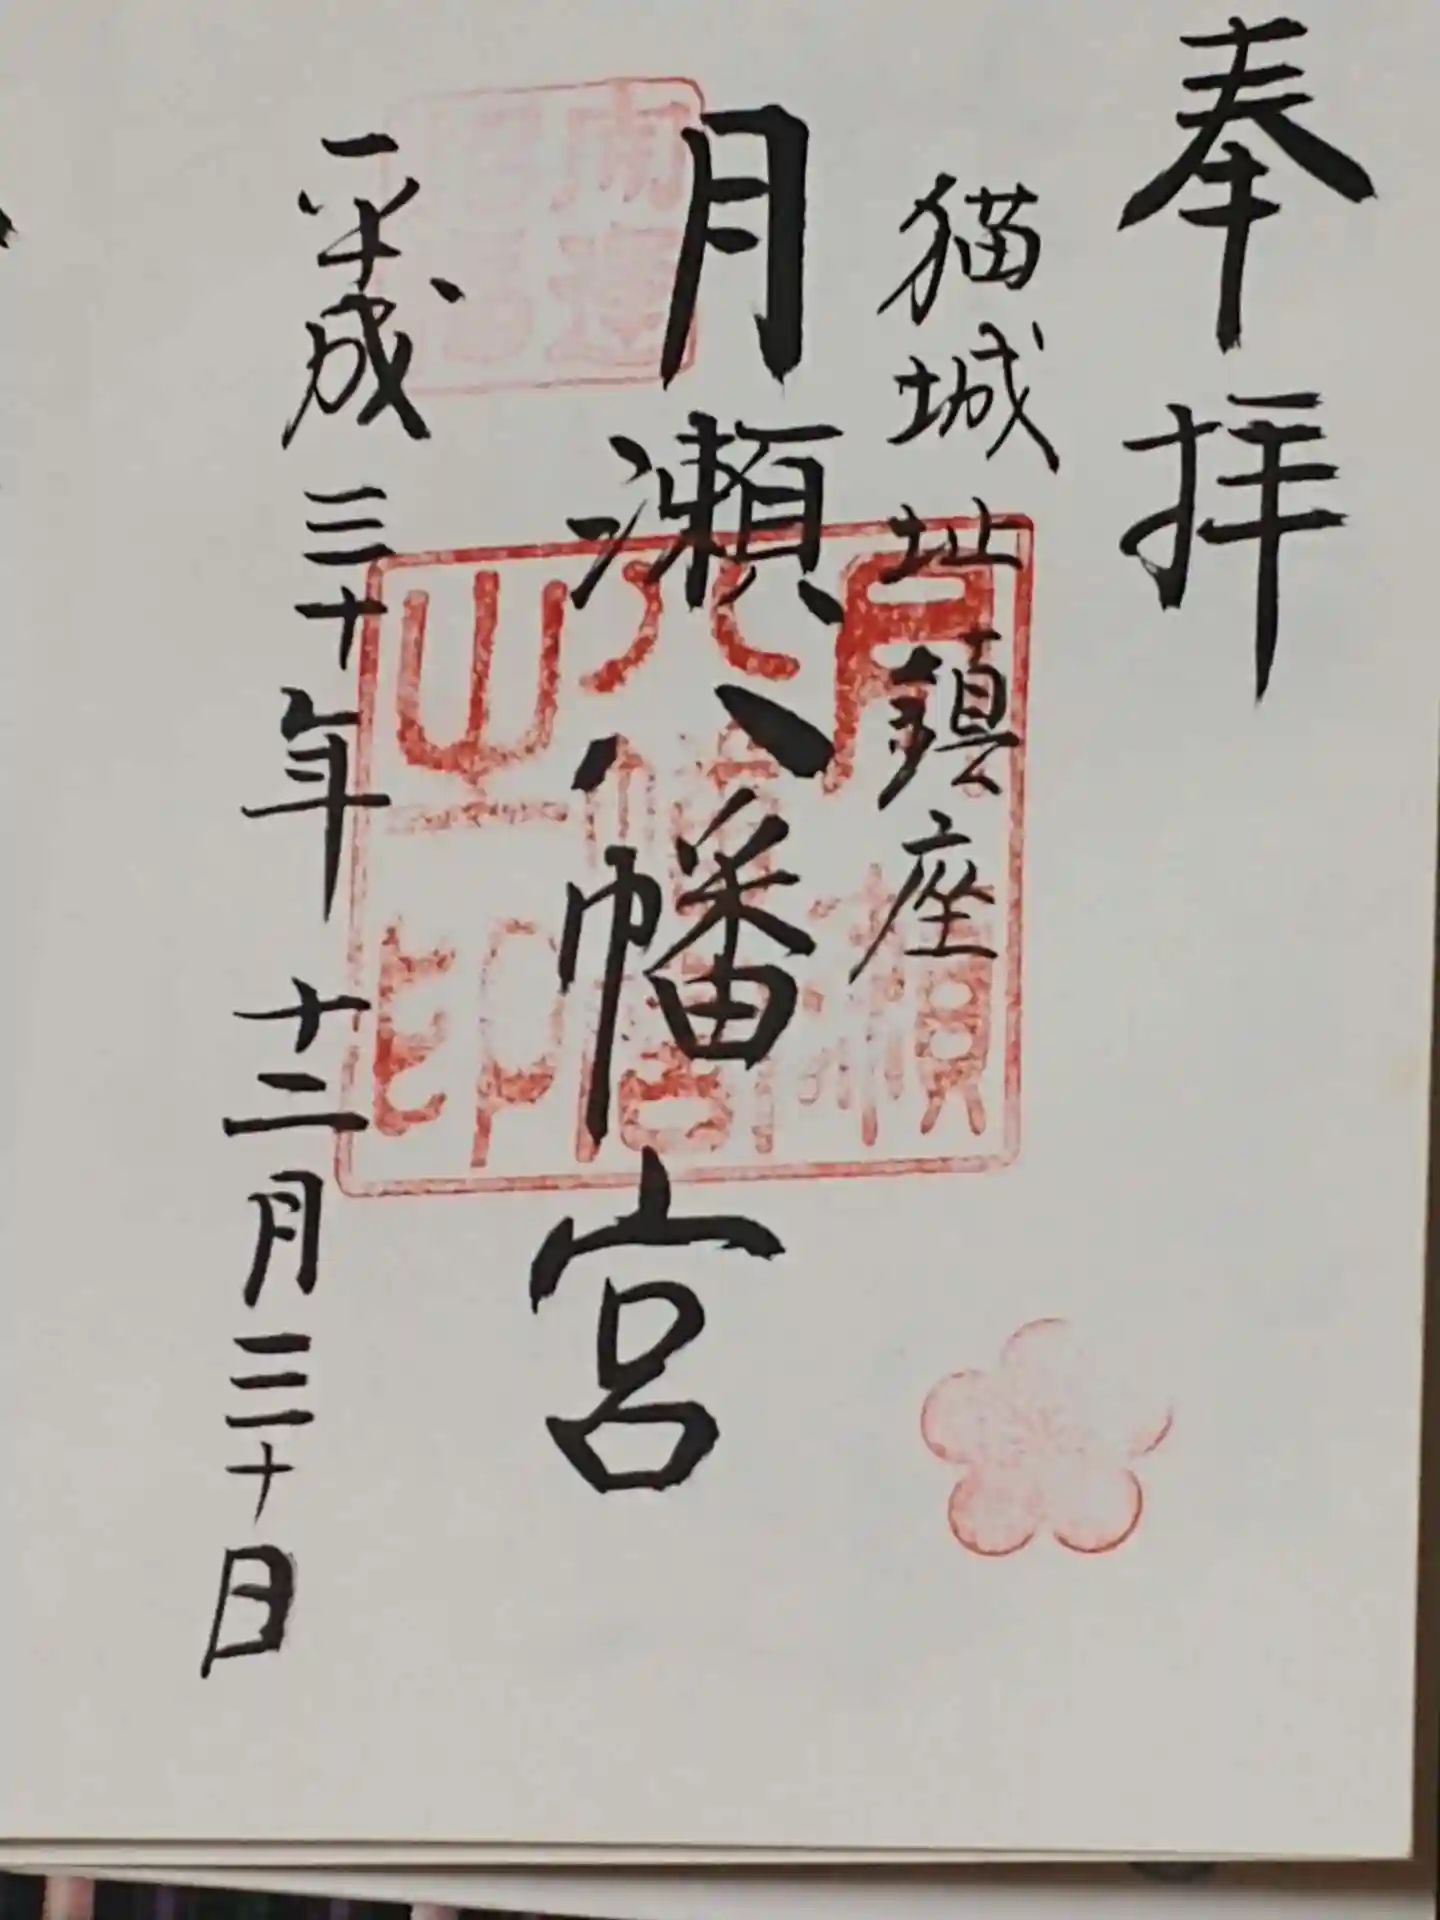 奉拝
猫城址鎮座
月瀬八幡宮
平成三十年十二月三十日
月瀬八幡宮之印